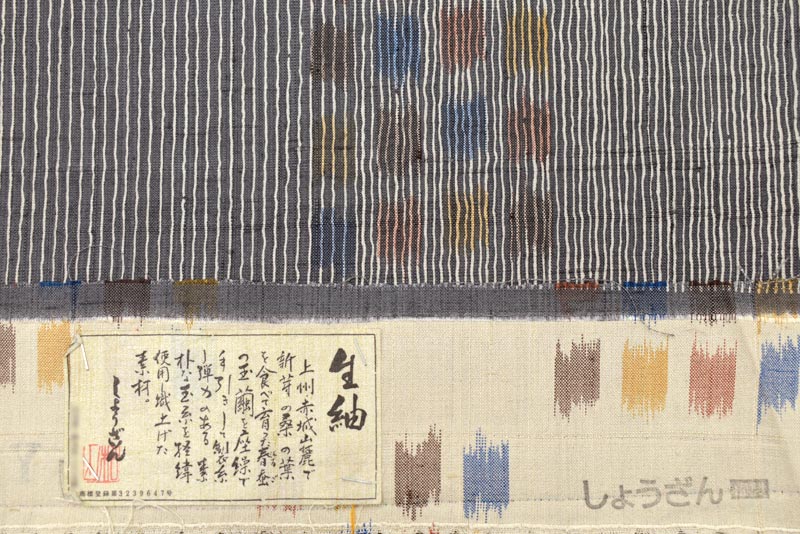 生紬
上州赤城山麓で
新芽の桑の葉
を食べて育った春蚕が
の玉繭を座繰で
手引きして製糸
し弾力のある素
朴な玉糸を経緯
使用織上げた
素材。
しょうざん
商標登録第3239647号
しょうざん